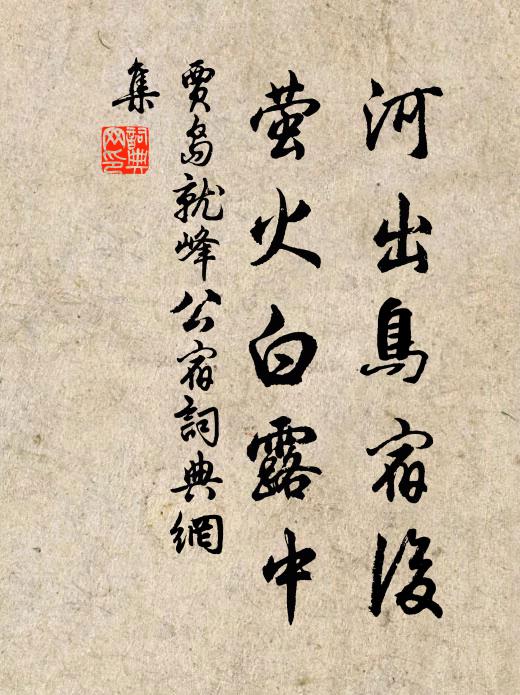 河出鳥宿後
萤火白露中
賈島就峰公宿詞典網
集
詞典
网印